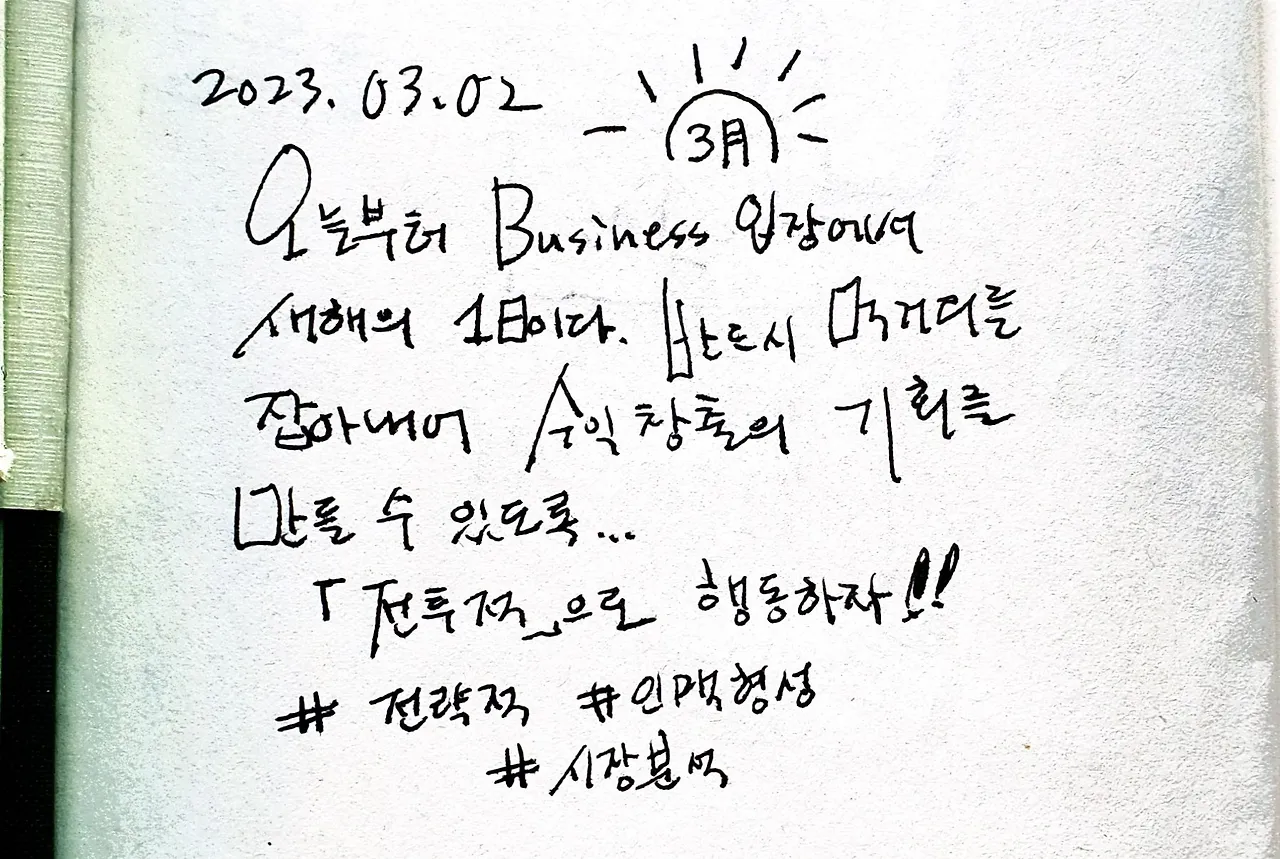 2023.03.02
3月
오늘부터 Business 입장에서
새해의 1日이다. 반드시 먹거리를
잡아내어 수익창출의 기회를
만들 수 있도록...
「전투적」으로 행동하자!!
# 전략적 #인맥형성
#시장분석